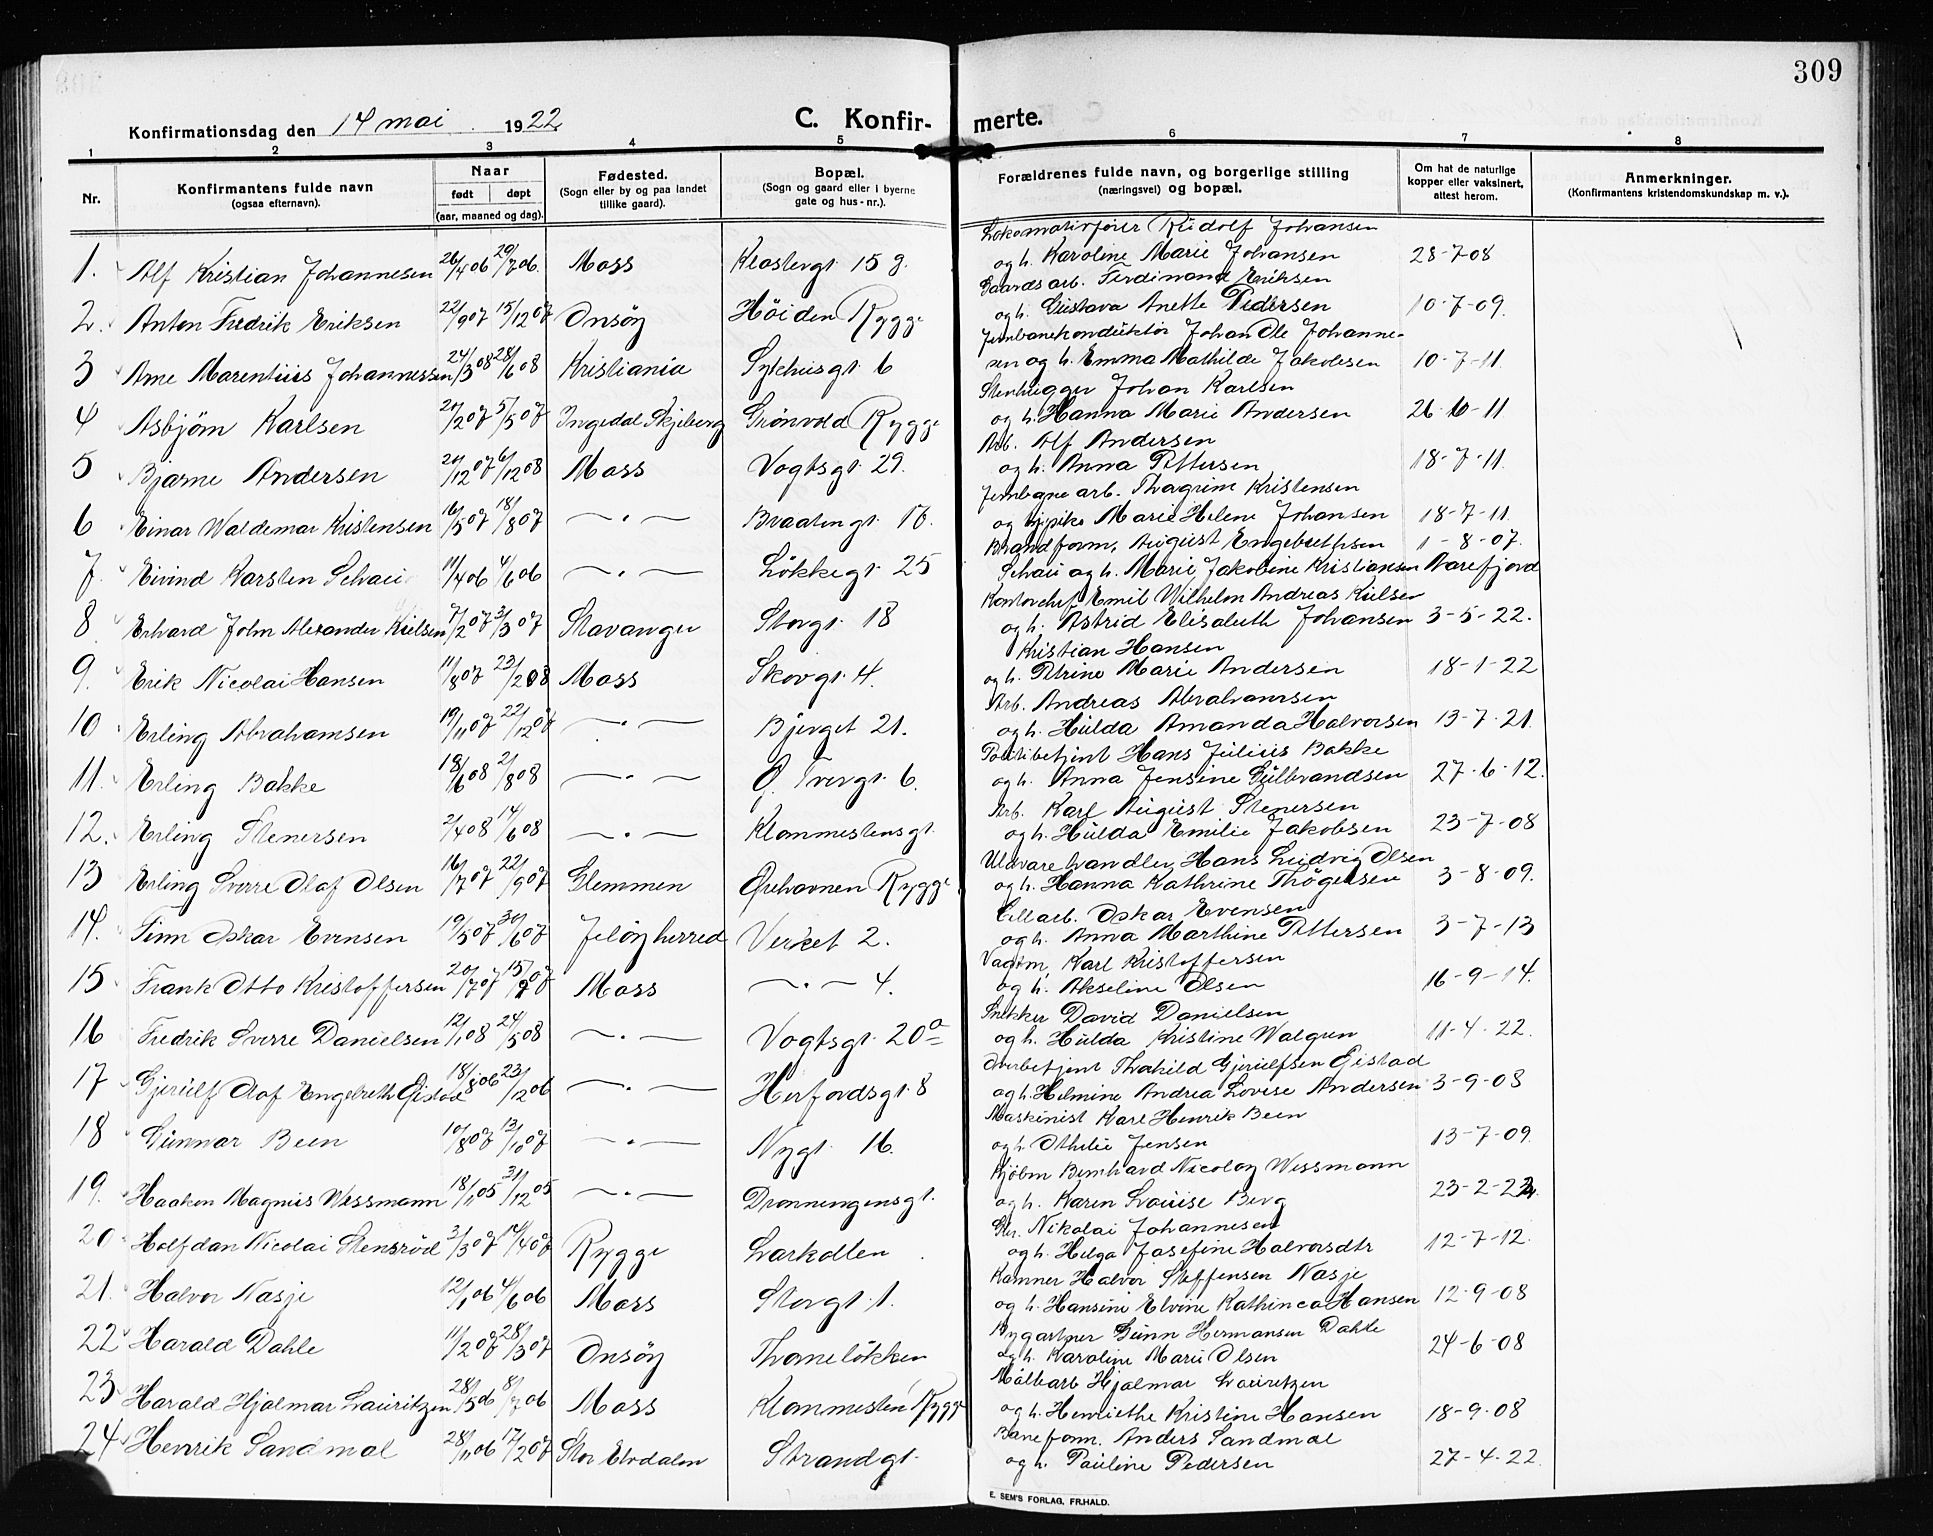 309
Konfirmationsdag den 14 mai 1922
C. Konfir- merte.
1 2 3 4 5 6 7 8
Nr.
Konfirmantens fulde navn
(ogsaa efternavn).
Naar
født døpt
(aar, maaned og dag).
Fødested.
(Sogn eller by og paa landet
tillike gaard).
Bopæl.
(Sogn og gaard eller i byerne
gate og hus-nr.).
Forældrenes fulde navn, og borgerlige stilling
(næringsvei) og bopæl.
Om hat de naturlige
kopper eller vaksinert,
attest herom.
Anmerkninger.
(Konfirmantens kristendomskundskap m. v.).
Lokomotivfører Rudolf Johansen
1. Alf Kristian Johannesen 26/4 06 29/7 06 Moss Klostergt. 15 g. og h. Karoline Marie Johansen 28-7-08
Gaardsarb. Ferdinand Eriksen
2. Anton Fredrik Eriksen 22/9 07 15/12 07 Onsöy Höiden Rygge og h. Gustava Anette Pedersen 10-7-09.
Jernbanekonduktör Johan Ole Johanne-
3 Arne Marentius Johannessen 24/3 08 28/6 08 Kristiania Sykhusgt. 6 sen og h. Emma Mathilde Jakobsen 10-7-11.
Stenhugger Johan Karlsen
4 Asbjörn Karlsen 21/2 07 5/5 07 Ingedal Skjeberg Grönvold Rygge og h. Hanna Marie Andersen 26-10-11
Arb. Alf Andersen
5 Bjarne Andersen 21/12 07 6/12 08 Moss Vogtsgt. 29. og h. Anna Pettersen 18-7-11.
Jernbanearb. Thorgrim Kristensen
6 Einar Waldemar Kristensen 16/5 07 18/8 07 — . — Braatengt. 16. og Marie Helene Johansen 18-7-11.
Brandform. August Engebrethsen 1-8-07.
7. Eivind Karsten Schau 11/4 06 4/6 06 — . — Lökkegt. 25 Schau og h. Marie Jakobine Kristiansen Narefjord
Kontorchef Emil Wilhelm Andreas Kielsen
8. Erhard John Alexander Kielsen 7/2 07 31/3 07 Stavanger Storgt. 18 og h. Astrid Elisabeth Johansen 3-5-22.
Kristian Hansen
9. Erik Nicolai Hansen 11/8 07 23/2 08 Moss Skovgt. 4. og h. Petrine Marie Andersen 18-1-22
Arb. Andreas Abrahamsen
10 Erling Abrahamsen 19/11 07 22/12 07 — . — Bjerget 21. og h. Hulda Amanda Halvorsen 13-7-21.
Politibetjent Hans Julius Bakke
11. Erling Bakke 18/6 08 2/8 08 — . — Ö. Tvergt. 6. og h. Anna Jensine Gulbrandsen 27-6-12.
Arb. Karl August Stenersen
12. Erling Stenersen 2/4 08 14/6 08 — . — Klommestensgt. og h. Hulda Emilie Jakobsen 23-7-08
Uldvarehandler Hans Ludvig Olsen
13 Erling Sverre Olaf Olsen 16/7 07 22/9 07 Glemmen Örehavnen Rygge og h. Hanna Kathrine Thögersen 3-8-09.
Cellarb. Oskar Evensen
14. Finn Oskar Evensen 19/5 07 30/6 07 Jelöy herred Verket 2. og h. Anna Marthine Pettersen 3-7-13
Vagtm. Karl Kristoffersen
15 Frank Otto Kristoffersen 20/7 07 15/9 07 Moss — . — 4. og h. Akseline Olsen 16-9-14.
Snekker David Danielsen
16 Fredrik Sverre Danielsen 12/1 08 24/5 08 — . — Vogtsgt. 20a og h. Hulda Kristine Walgren 11-4-22.
Overbetjent Thorhild Gjerulfsen Gistad
17 Gjerulf Olaf Engebreth Gistad 18/8 06 23/12 06 — . — Herfordsgt. 8 og h. Helmine Andrea Lovise Andersen 3-9-08
Maskinist Karl Henrik Been
18 Gunnar Been 10/8 07 13/10 07 — . — Nygt. 16. og h. Othilie Jensen 13-7-09.
Kjöbm. Bernhard Nicolay Wessmann
19. Haakon Magnus Wessmann 18/11 05 31/12 05 — . — Dronningensgt. og h. Karen Louise Berg 23-2-22.
Gbr. Nikolai Johannesen
20 Halfdan Nicolai Stensröd 3/3 07 14/4 07 Rygge Larkollen og h. Helga Josefine Halvorsdtr 12-7-12.
Kæmner Halvor Steffensen Nasje
21. Halvor Nasje 12/1 06 4/6 06 Moss Storgt. 1. og h. Hansine Elvine Kathinca Hansen 12-9-08
Bygartner Gunn Hermansen Dahle
22 Harald Dahle 11/2 07 28/3 07 Onsöy Throneløkken og h. Karoline Marie Olsen 24-6-08
Malerarb Hjalmar Lauritzen
23 Harald Hjalmar Lauritzen 28/5 06 8/7 06 Moss Klommesten Rygge og h. Henriethe Kristine Hansen 18-9-08
Baneform. Anders Sandmæl
24 Henrik Sandmæl 28/11 06 17/2 07 Stor Elvdalen Strandgt. og h. Pauline Pedersen 27-4-22
E. SEM'S FORLAG, FR.HALD.